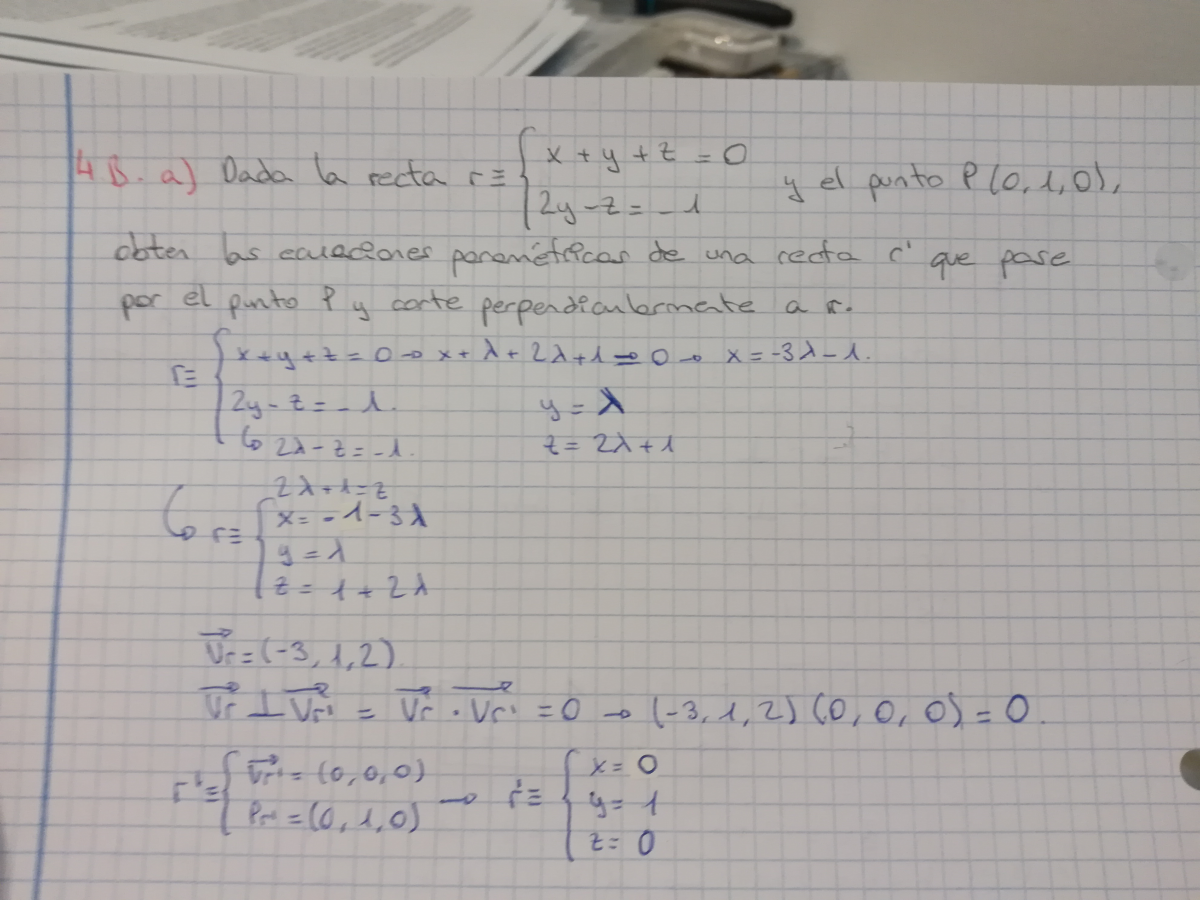 4.B. a) Dada la recta r≡ { x + y + z = 0
2y - z = -1 y el punto P(0,1,0),
obten las ecuaciones paramétricas de una recta r' que pase
por el punto P y corte perpendicularmente a r.
r≡ { x + y + z = 0 → x + λ + 2λ + 1 = 0 → x = -3λ - 1.
2y - z = -1. y = λ
↳ 2λ - z = -1. z = 2λ + 1
2λ + 1 = z
↳ r≡ { x = -1 - 3λ
y = λ
z = 1 + 2λ
Vr = (-3, 1, 2)
Vr ⊥ Vr' = Vr · Vr' = 0 → (-3, 1, 2) (0, 0, 0) = 0.
r'≡ { Vr' = (0, 0, 0)
Pr' = (0, 1, 0) → r'≡ { x = 0
y = 1
z = 0